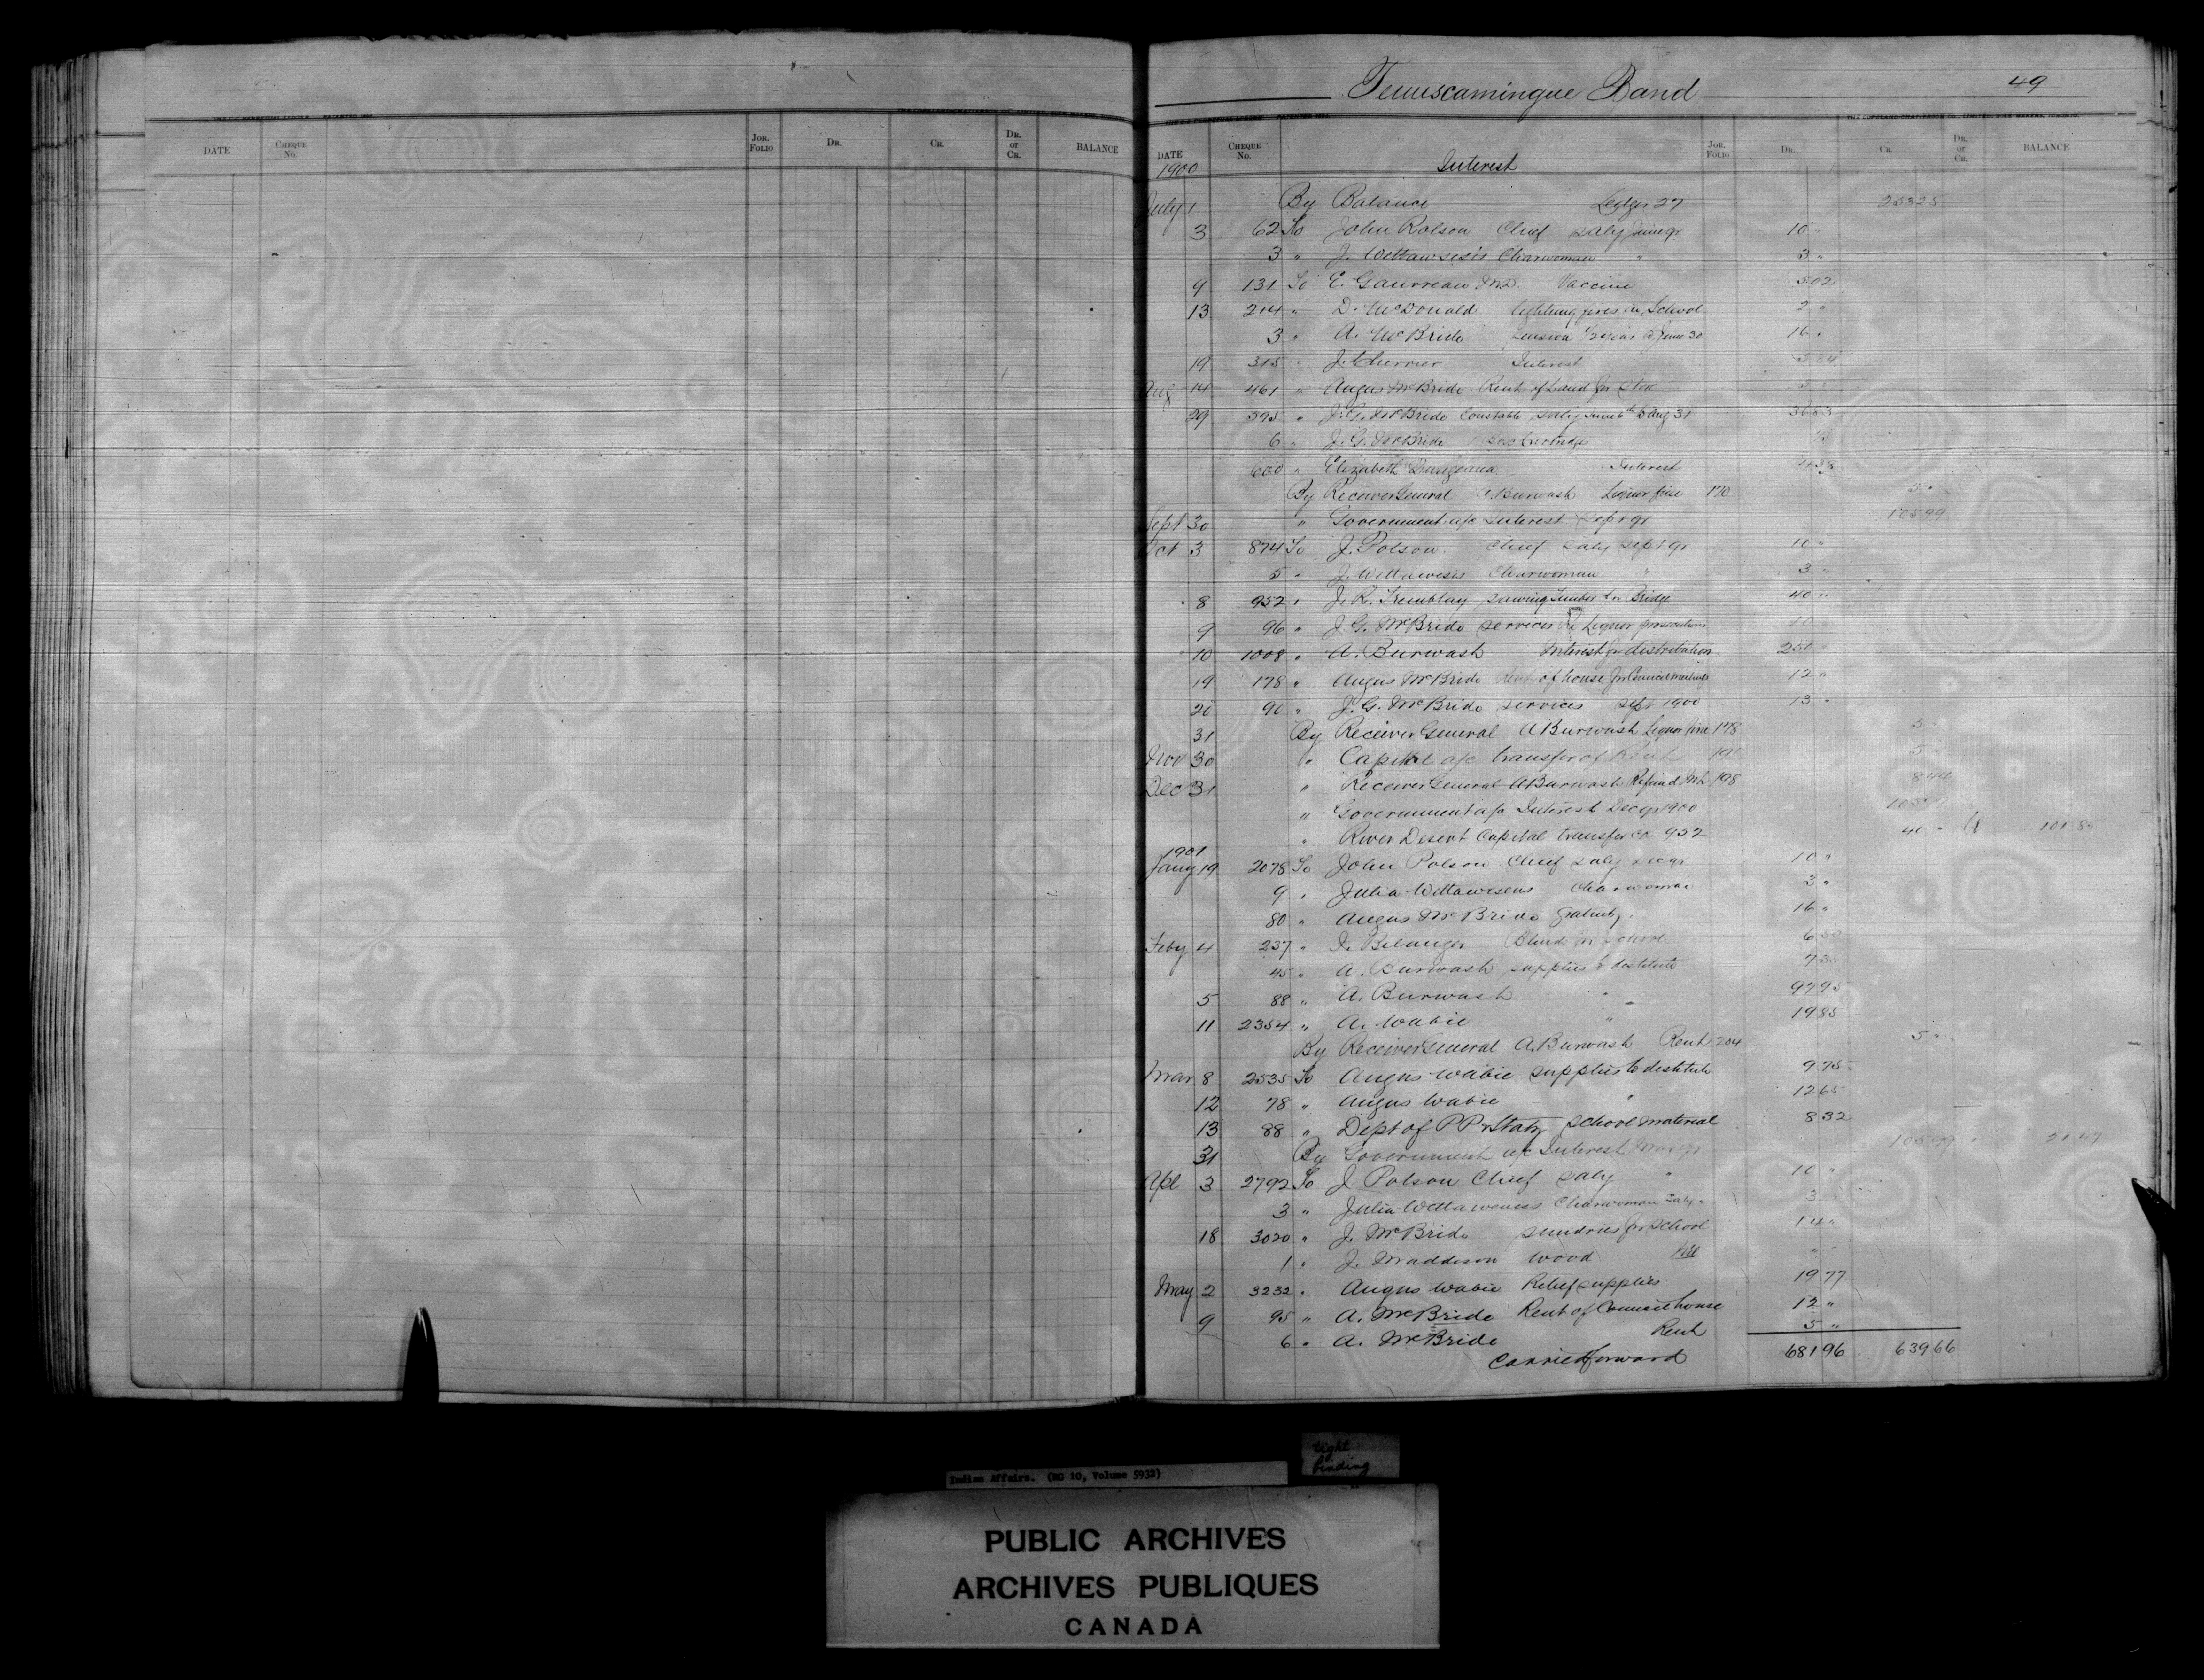 Temiscamingue Band 49
DATE CHEQUE No. JOR. FOLIO DR. CR. DR. or CR. BALANCE
DATE CHEQUE No. JOR. FOLIO DR. CR. DR. or CR. BALANCE
1900 Interest
July 1 By Balance Ledger 27 253 25
3 62 To John Polson Chief saly June qr 10 "
3 " J. Wettawesis Charwoman " 3 "
9 131 To E. Gauvreau M.D. Vaccine 5 02
13 214 " D. McDonald lighting fires in School 2 "
3 " A. McBride pension 1/2 year to June 30 16 "
19 315 " J. Chevrier Interest
Aug 14 461 " Angus McBride Rent of Land for
29 595 " J. G. McBride Constable saly June 6th to Aug 31 36 83
6 " J. G. McBride
600 " Elizabeth Interest
By Receiver General A Burwash Liquor fine 170 5 "
Sept 30 " Government a/c Interest Sept qr 105 99
Oct 3 874 To J. Polson Chief saly Sept qr 10 "
5 " J. Wettawesis Charwoman " 3 "
8 952 " J. R. Tremblay sawing Timber for Bridge 40 "
9 96 " J. G. McBride services Re Liquor prosecutions
10 1008 " A. Burwash Interest for distribution 250 "
19 178 " Angus McBride Rent of house for Council meetings 12 "
20 90 " J. G. McBride services Sept 1900 13 "
31 By Receiver General A Burwash Liquor fine 178
Nov 30 " Capital a/c transfer of Rent 191 5 "
Dec 31 " Receiver General A Burwash Refund Int 198 8 44
" Government a/c Interest Dec qr 1900 105 99
" River Desert Capital transfer Ck 952 40 " Cr 101 85
1901
Jany 19 2078 To John Polson Chief saly Dec qr 10 "
9 " Julia Wettawesens Charwoman 3 "
80 " Angus McBride Gratuity 16 "
Feby 4 237 " I. Belanger Blinds for School 6 50
45 " A. Burwash supplies to destitute 7 35
5 88 " A. Burwash " " 97 95
11 2354 " A. Wabie " 19 85
By Receiver General A. Burwash Rent 204 5 "
Mar 8 2535 To Angus Wabie supplies to destitute 9 75
12 78 " Angus Wabie " 12 65
13 88 " Dept of P P & Staty School material 8 32
31 By Government a/c Interest Mar qr 105 99 " 21 47
Apl 3 2792 To J Polson Chief saly " 10 "
3 " Julia Wettawenes Charwoman saly " 3
18 3020 " J. McBride sundries for School 14 "
1 " J. Maddison wood
May 2 3232 " Angus Wabie Relief supplies 19 77
9 95 " A. McBride Rent of Council house 12 "
6 " A. McBride Rent 5 "
Carried forward 681 96 639 66
Indian Affairs. (RG 10, Volume 5932)
tight
binding
PUBLIC ARCHIVES
ARCHIVES PUBLIQUES
CANADA